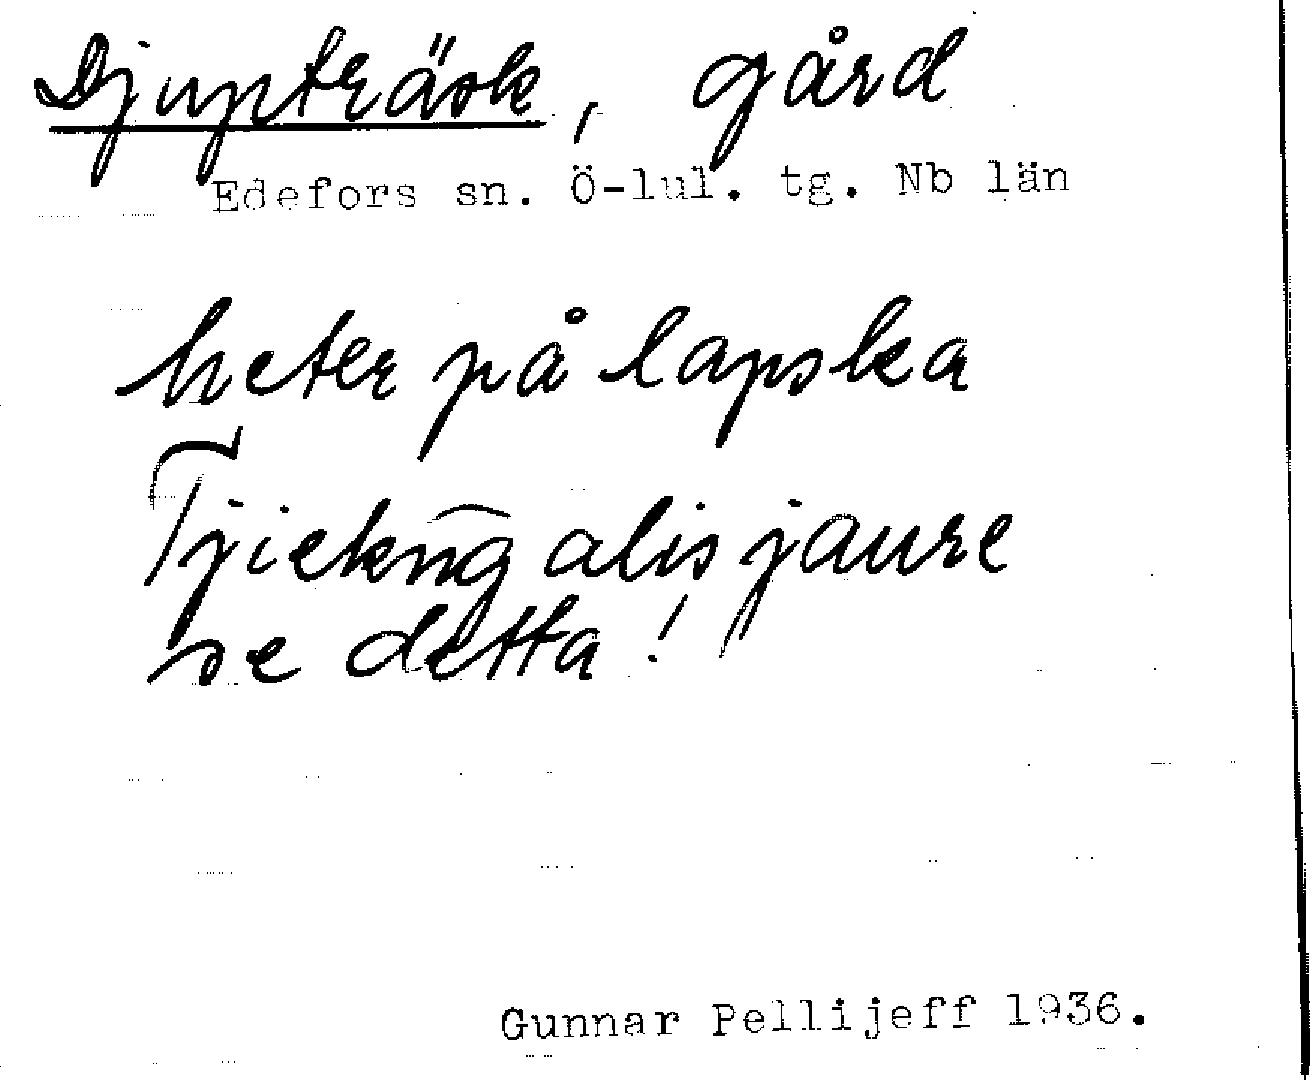 Djupträsk, gård
Edefors sn. Ö-lul. tg. Nb län
heter på lapska
Tjiekn͡galisjaure
se detta!
Gunnar Pellijeff 1936.